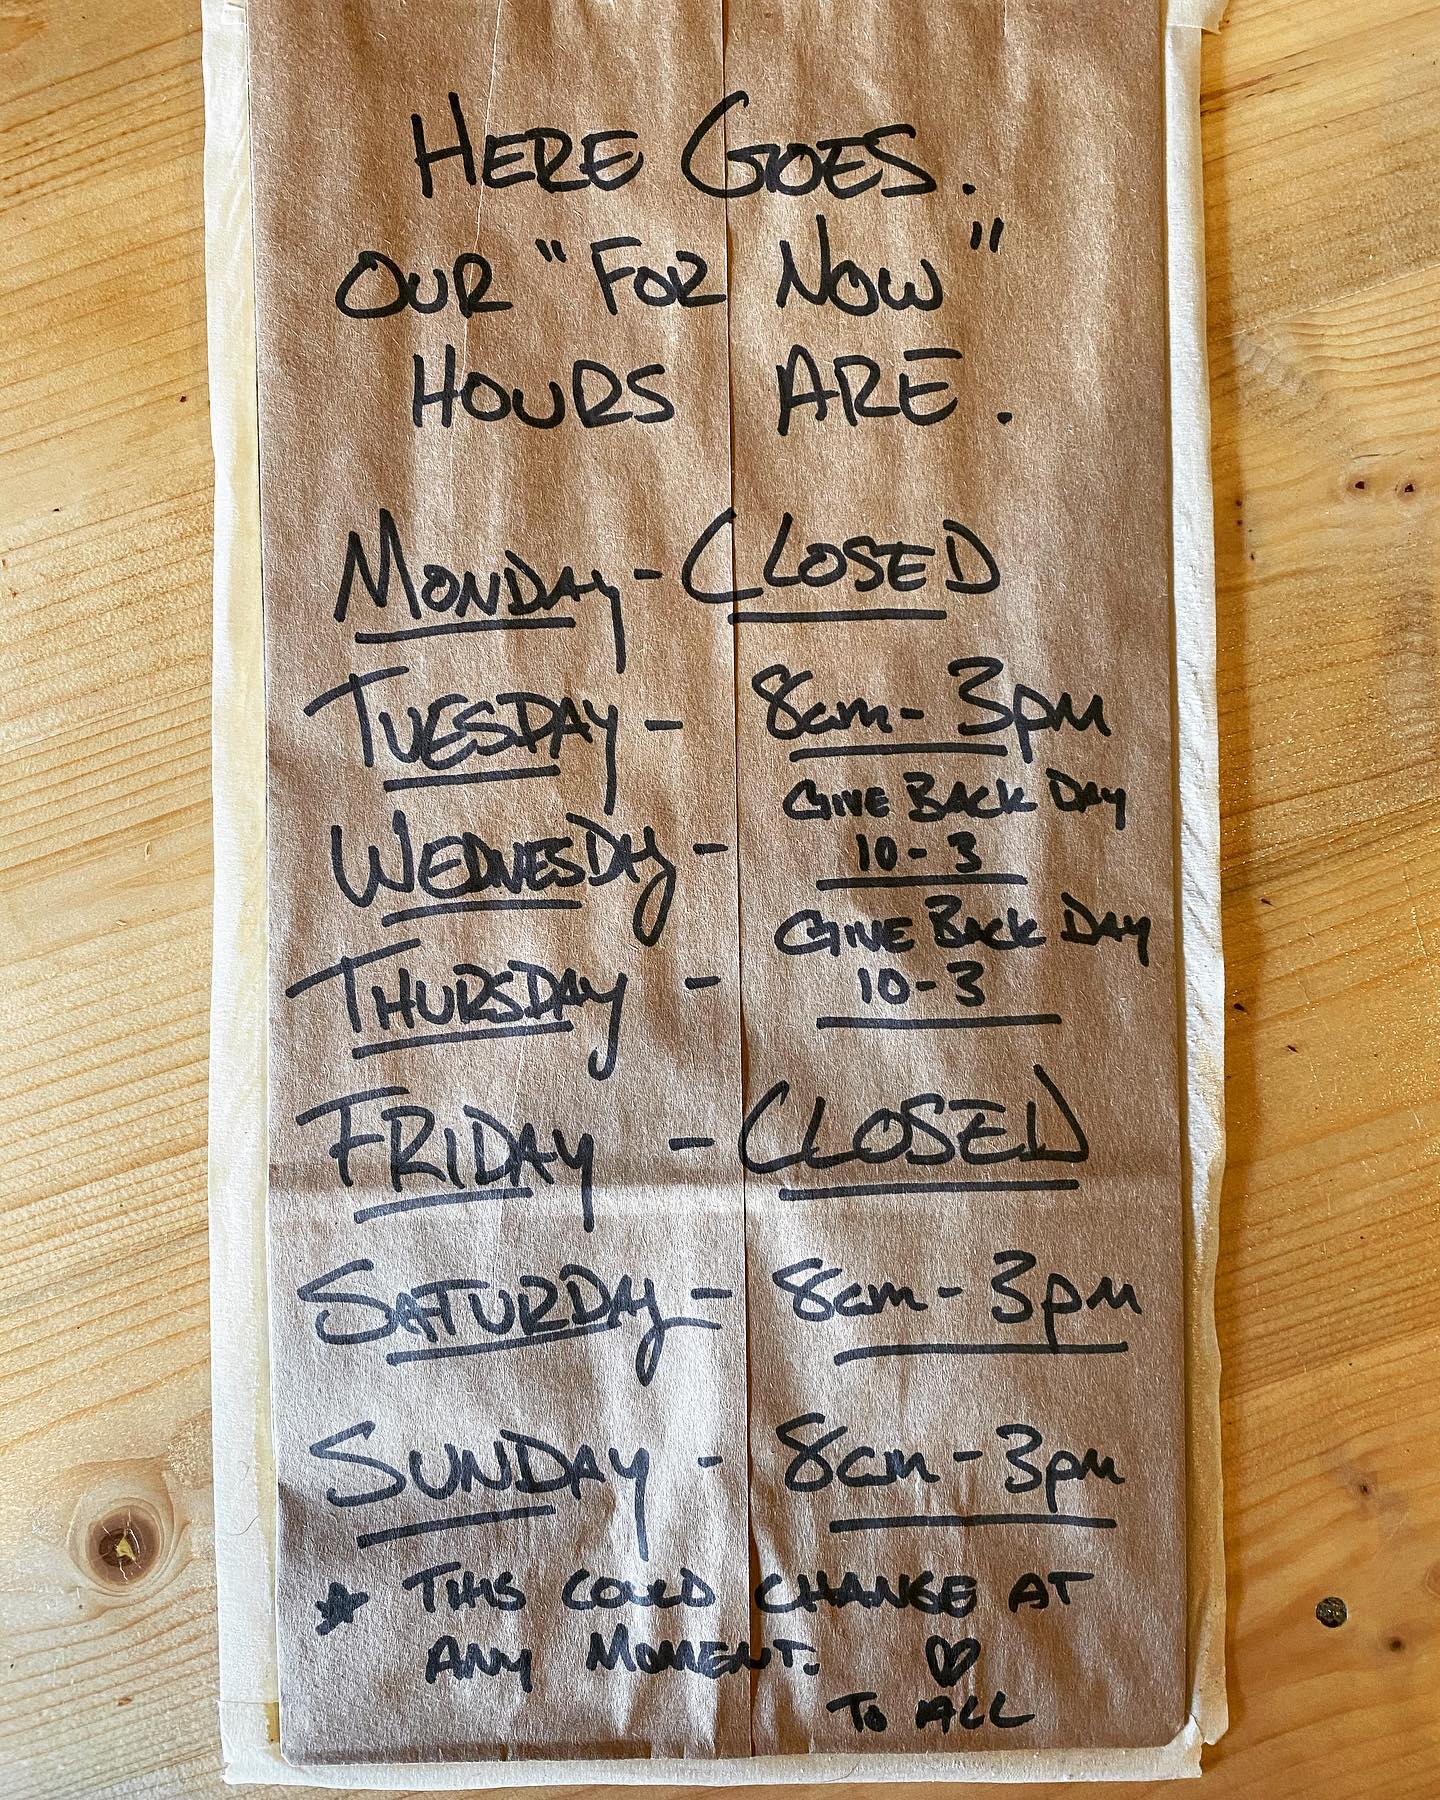 HERE GOES.
OUR "FOR NOW"
HOURS ARE.
MONDAY - CLOSED
TUESDAY - 8am - 3pm
GIVE BACK DAY
WEDNESDAY - 10 - 3
GIVE BACK DAY
THURSDAY - 10 - 3
FRIDAY - CLOSED
SATURDAY - 8am - 3pm
SUNDAY - 8am - 3pm
★ THIS COULD CHANGE AT
ANY MOMENT. ♡
TO ALL